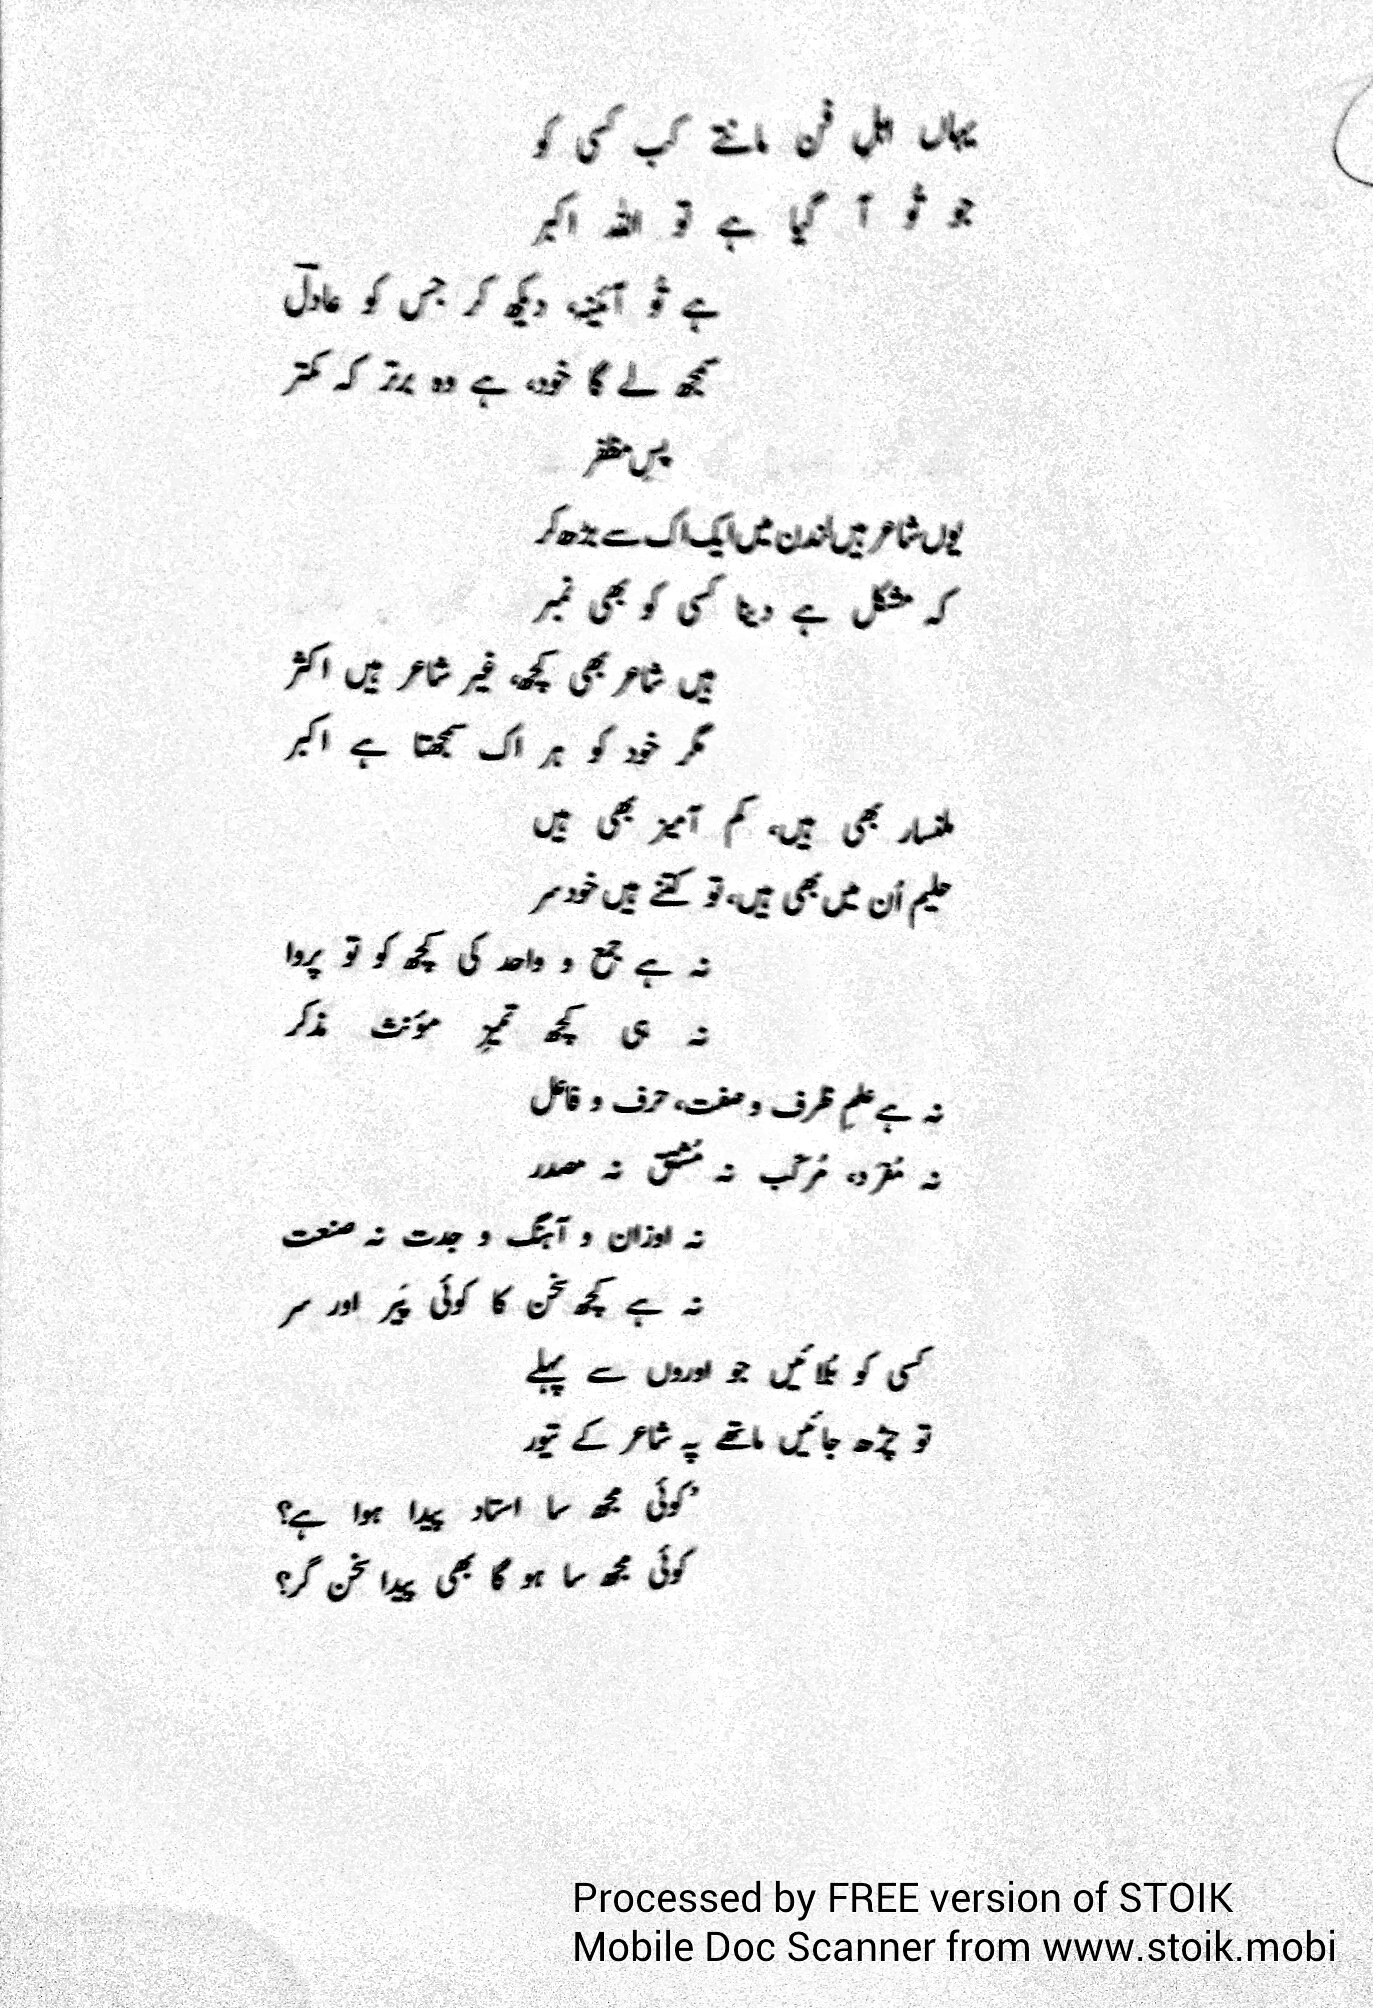 یہاں اہلِ فن مانتے کب کسی کو
جو تُو آ گیا ہے تو اللہ اکبر
ہے تُو آئینہ، دیکھ کر جس کو عادلؔ
سمجھ لے گا خود، ہے وہ برتر کہ کمتر
پس منظر
یوں شاعر ہیں لندن میں ایک اک سے بڑھ کر
کہ مشکل ہے دینا کسی کو بھی نمبر
ہیں شاعر بھی کچھ، غیر شاعر ہیں اکثر
مگر خود کو ہر اک سمجھتا ہے اکبر
ملنسار بھی ہیں، کم آمیز بھی ہیں
حلیم اُن میں بھی ہیں، تو کتنے ہیں خود سر
نہ ہے جمع و واحد کی کچھ کو تو پروا
نہ ہی کچھ تمیزِ مؤنث مذکر
نہ ہے علمِ ظرف و صفت، حرف و فاعل
نہ مُفرَد، مُرکّب نہ مُشتق نہ مصدر
نہ اوزان و آہنگ و جدت نہ صنعت
نہ ہے کچھ سخن کا کوئی پَیر اور سر
کسی کو بُلائیں جو اوروں سے پہلے
تو چڑھ جائیں ماتھے پہ شاعر کے تیور
’کوئی مجھ سا استاد پیدا ہوا ہے؟
کوئی مجھ سا ہو گا بھی پیدا سخن گر؟
Processed by FREE version of STOIK
Mobile Doc Scanner from www.stoik.mobi